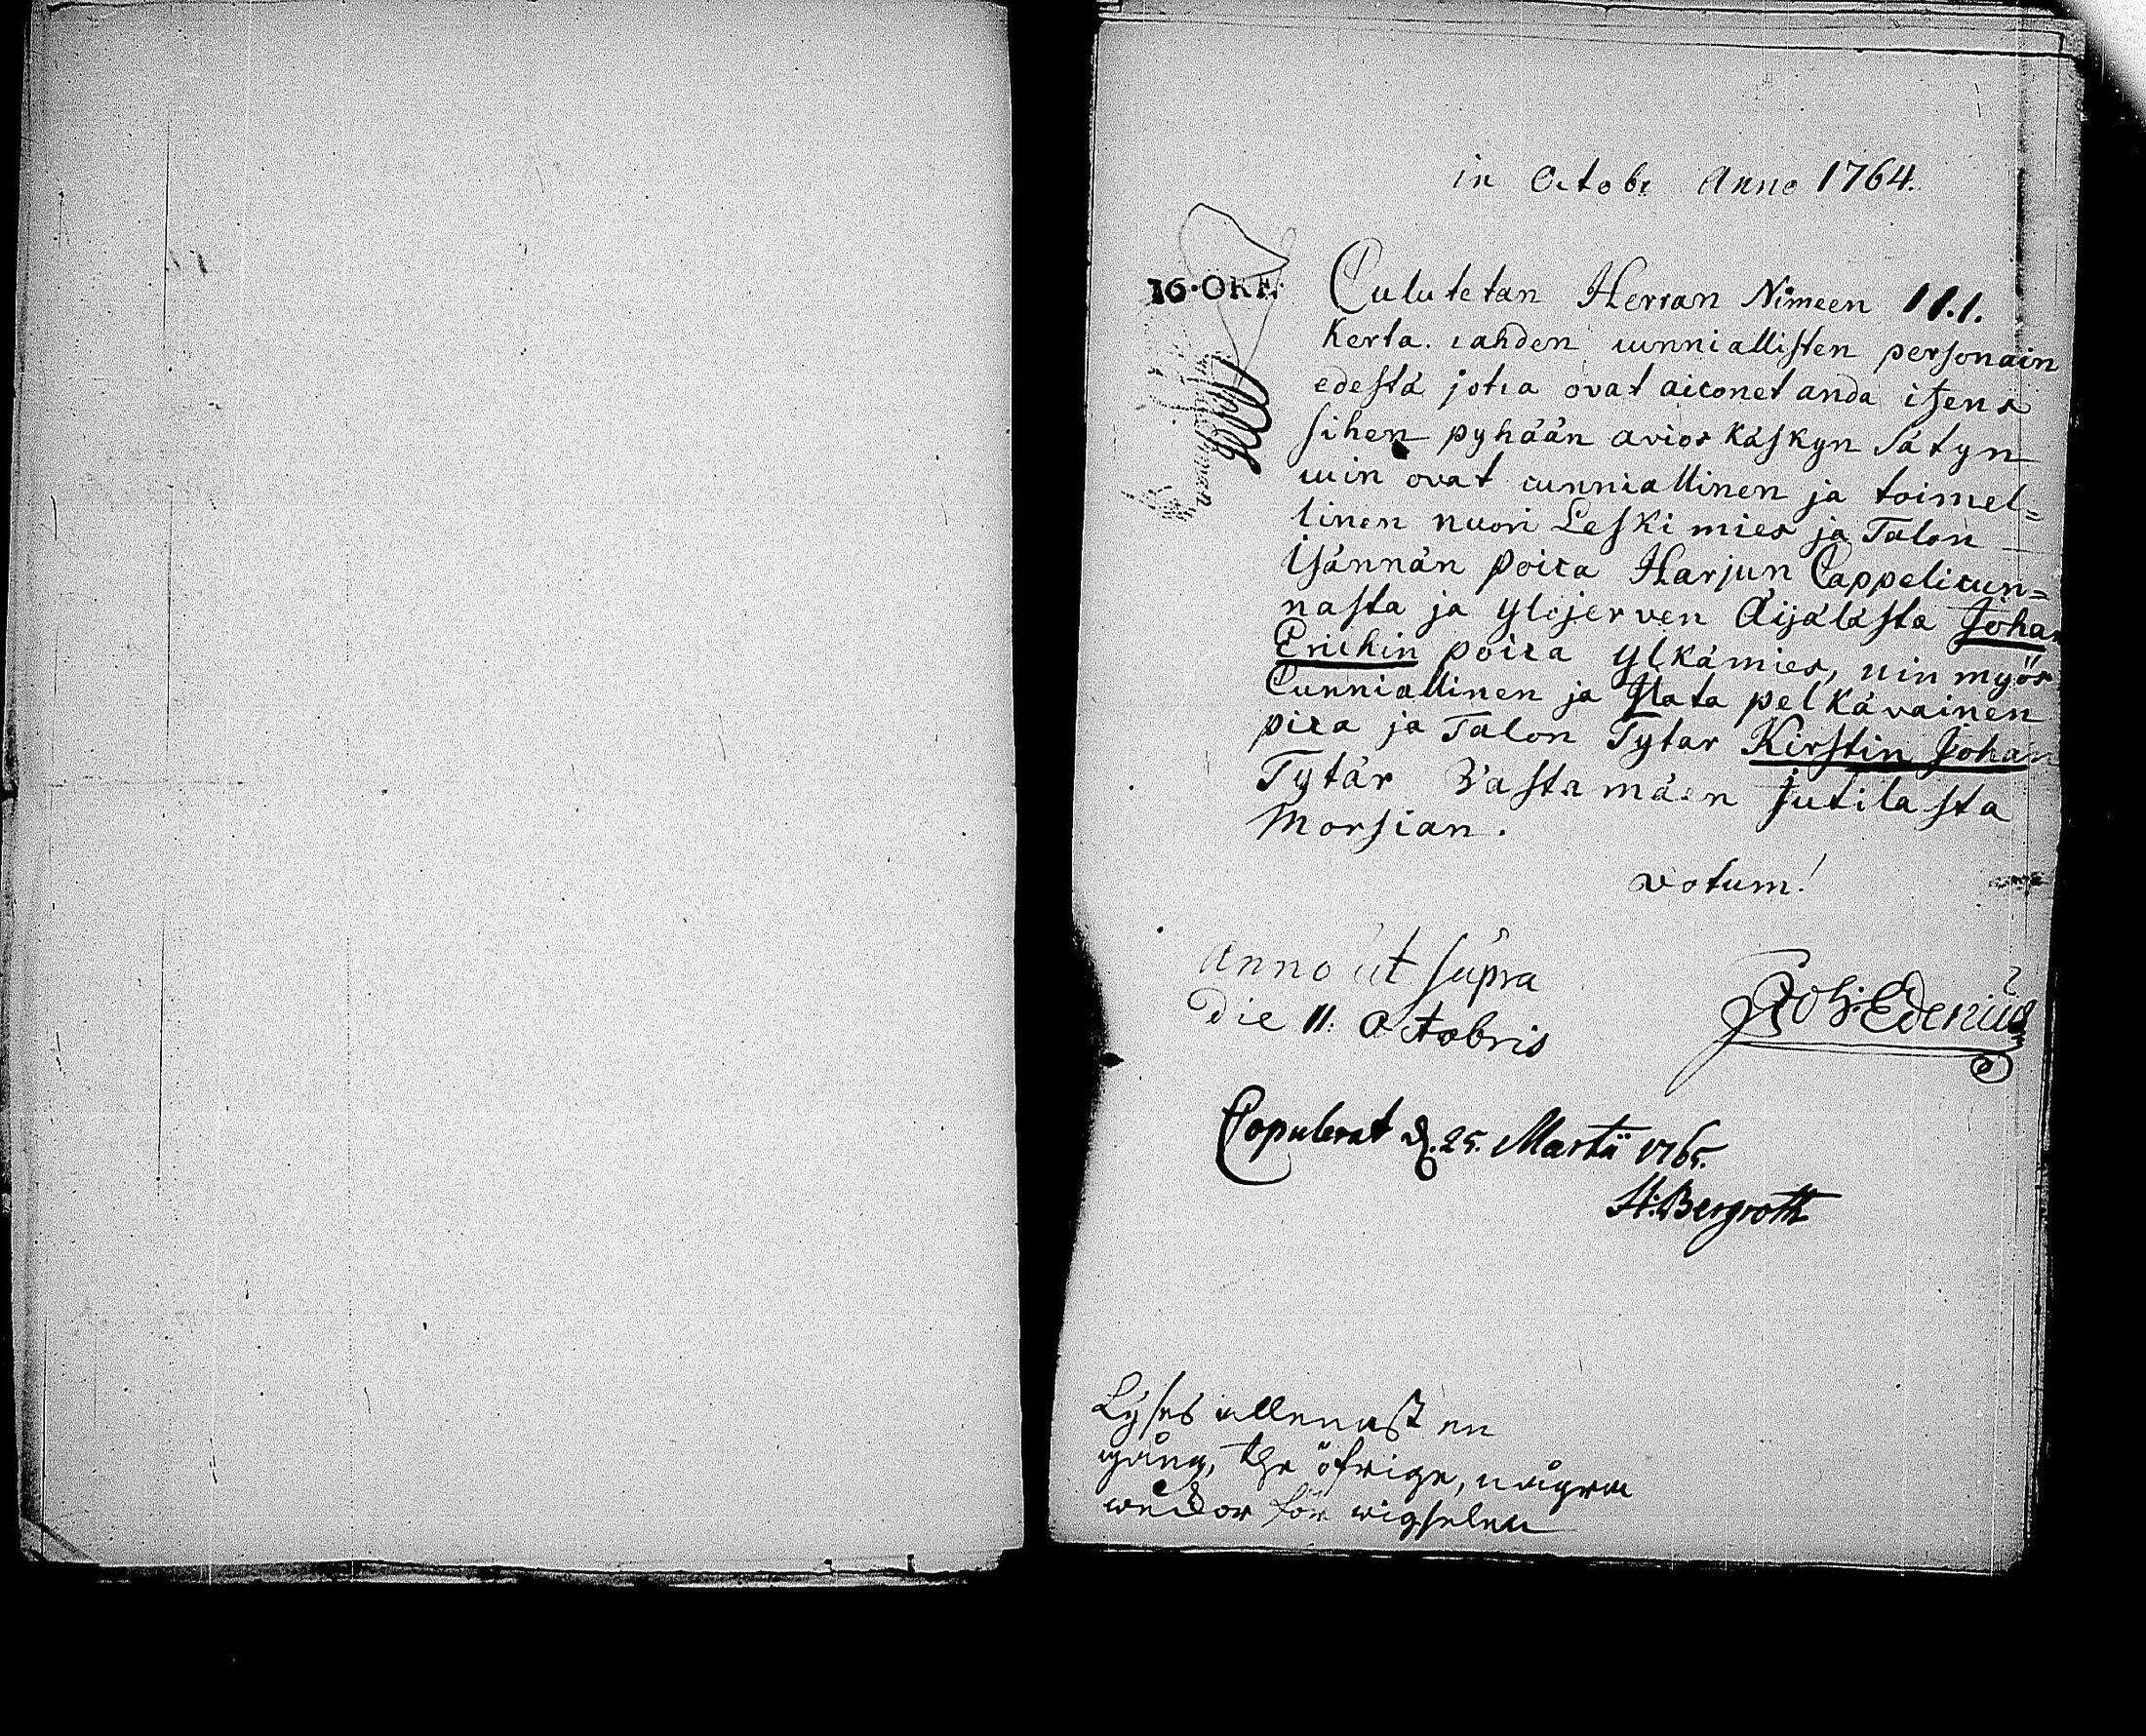 in Octobr Anno 1764.
16·ÖRE.
Culutetan Herran Nimeen 11.1.
Kerta. cahden cunniallisten personain
edestä jotca ovat aiconet anda itzens
sihen pyhään avios käskyn Sätyn
cuin ovat cunniallinen ja toimel=
linen nuori Leski mies ja Talon
Isännän poica Harjun Cappelicun=
nasta ja ylijerven Äijälästa Johan
Erichin poica ylkämies, nin myös
Cunniallinen ja Jlata pelkävainen
pica ja Talon Tytar Kirstin Johan
Tytär Vastamäen Jutilasta
Morsian.
votum!
Anno ut supra
Die 11. Octobris
Joh: Edenius
Copulerat d. 25. Martii 1765.
H. Bergroth
Lyses allenast en
gång, the öfrige, några
weckor för wigselen